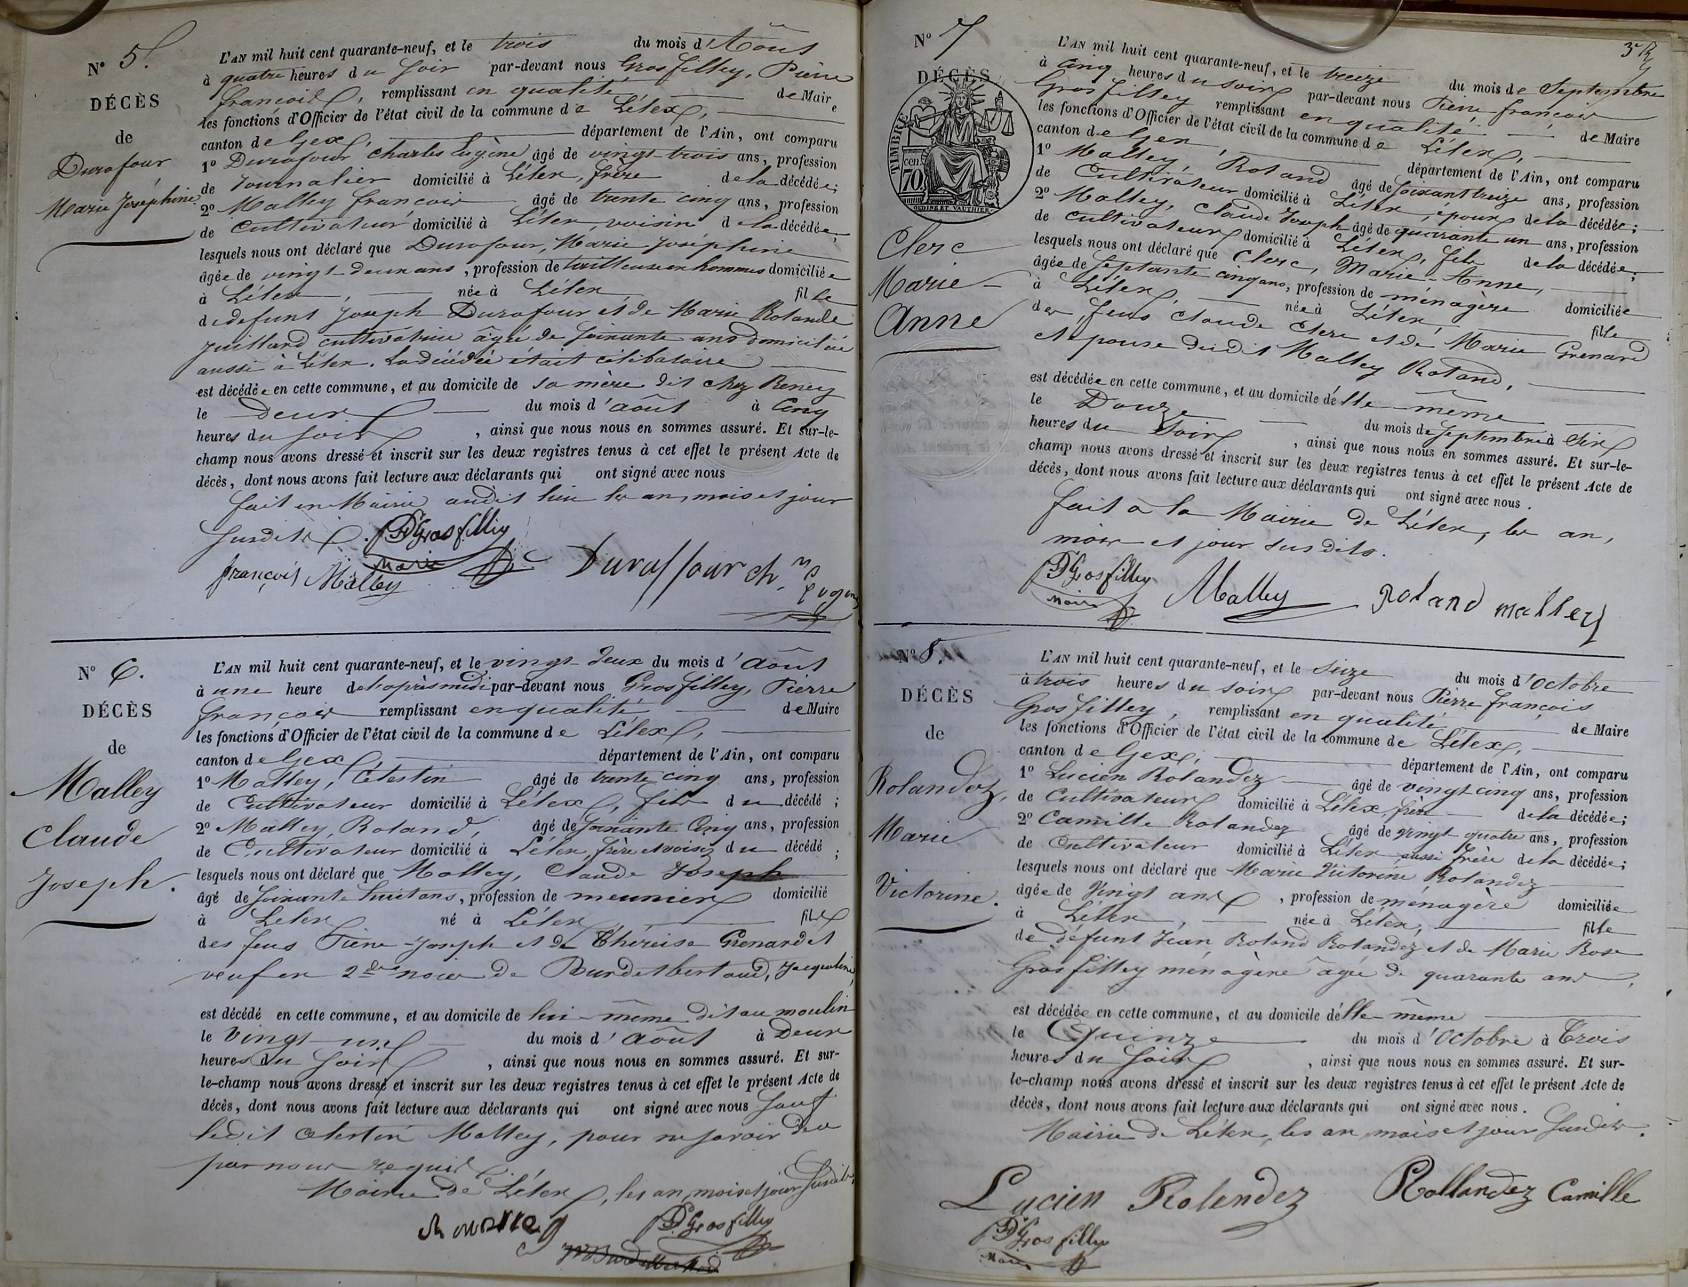 N° 5.
DÉCÈS
de
Durafour
Marie Joséphine
L'AN mil huit cent quarante-neuf, et le trois du mois d'Aôut
à quatre heures du soir par-devant nous Grosfilley, Pierre
françois, remplissant en qualité de Maire
les fonctions d'Officier de l'état civil de la commune de Lélex,
canton de Gex, département de l'Ain, ont comparu
1° Durafour, Charles Eugène âgé de vingt trois ans, profession
de Journalier domicilié à Lélex, frère de la décédée;
2° Malley françois âgé de trente cinq ans, profession
de Cultivateur domicilié à Lélex, voisin de la décédée,
lesquels nous ont déclaré que Durafour, Marie Joséphine
âgée de vingt deux ans, profession de tailleuse en hommes domiciliée
à Lélex, née à Lélex fille
de defunt Joseph Durafour et de Marie Rolande
Juilland cultivatrice âgée de soixante ans domiciliée
aussi à Lélex. La décédée était célibataire
est décédée en cette commune, et au domicile de sa mère dit chez Reney
le Deux du mois d'août à Cinq
heures du soir, ainsi que nous nous en sommes assuré. Et sur-le-
champ nous avons dressé et inscrit sur les deux registres tenus à cet effet le présent Acte de
décès, dont nous avons fait lecture aux déclarants qui ont signé avec nous
fait en Mairie audit lieu les an, mois et jour
susdits. PFGrosfilley
Maire
françois Malley Duraffour ch. Eugene
N° 6.
DÉCÈS
de
Malley
Claude
Joseph.
L'AN mil huit cent quarante-neuf, et le vingt deux du mois d'Août
à une heure de l'après midi par-devant nous Grosfilley, Pierre
françois remplissant en qualité de Maire
les fonctions d'Officier de l'état civil de la commune de Lélex,
canton de Gex, département de l'Ain, ont comparu
1° Malley, Célestin âgé de trente cinq ans, profession
de Cultivateur domicilié à Lélex, fils du décédé;
2° Malley, Roland, âgé de soixante Cinq ans, profession
de Cultivateur domicilié à Lélex, frère et voisin du décédé;
lesquels nous ont déclaré que Malley, Claude Joseph
âgé de soixante huit ans, profession de meunier domicilié
à Lélex né à Lélex fils
des feus Pierre-Joseph et de Théreise Grenard et
veuf en 2des noces de Burdet bertaud, Jacqueline,
est décédé en cette commune, et au domicile de lui-même dit au moulin
le Vingt un du mois d'Août à Deux
heures du soir, ainsi que nous nous en sommes assuré. Et sur-
le-champ nous avons dressé et inscrit sur les deux registres tenus à cet effet le présent Acte de
décès, dont nous avons fait lecture aux déclarants qui ont signé avec nous sauf
ledit Célestin Malley, pour ne savoir de ce
par nous requis
Mairie de Lélex, les an, mois et jour susdits,
PFGrosfilley
N° 7
3
DÉCÈS
TIMBRE
cen
70
OUDINE ET VAUTHIER
Clerc
Marie
Anne
L'AN mil huit cent quarante-neuf, et le treize du mois de Septembre
à Cinq heures du soir par-devant nous Pierre françois
Grosfilley remplissant en qualité de Maire
les fonctions d'Officier de l'état civil de la commune de Lélex,
canton de Gex, département de l'Ain, ont comparu
1° Malley, Roland âgé de soixant treize ans, profession
de Cultivateur domicilié à Lélex, époux de la décédée;
2° Malley, Claude Joseph âgé de quarante un ans, profession
de cultivateur domicilié à Lélex, fils de la décédée;
lesquels nous ont déclaré que Clerc, Marie-Anne,
âgée de septante cinq ans, profession de ménagère domiciliée
à Lélex, née à Lélex fille
des feus Claude Clerc et de Marie Grenard
et épouse dudit Malley Roland,
est décédée en cette commune, et au domicile d'elle-même
le Douze du mois de Septembre à Six
heures du soir, ainsi que nous nous en sommes assuré. Et sur-le-
champ nous avons dressé et inscrit sur les deux registres tenus à cet effet le présent Acte de
décès, dont nous avons fait lecture aux déclarants qui ont signé avec nous.
fait à la Mairie de Lélex, les an,
mois et jour susdits.
PFGrosfilley Malley roland malley
Maire
N° 8.
DÉCÈS
de
Rolandez,
Marie
Victorine.
L'AN mil huit cent quarante-neuf, et le seize du mois d'Octobre
à trois heures du soir par-devant nous Pierre françois
Grosfilley, remplissant en qualité de Maire
les fonctions d'Officier de l'état civil de la commune de Lélex,
canton de Gex, département de l'Ain, ont comparu
1° Lucien Rolandez âgé de vingt cinq ans, profession
de Cultivateur domicilié à Lélex, frère de la décédée;
2° Camille Rolandez âgé de vingt quatre ans, profession
de Cultivateur domicilié à Lélex aussi frère de la décédée;
lesquels nous ont déclaré que Marie Victorine Rolandez
âgée de Vingt ans, profession de ménagère domiciliée
à Lélex, née à Lélex, fille
de défunt Jéan Roland Rolandez et de Marie Rose
Grosfilley ménagère âgée de quarante ans,
est décédée en cette commune, et au domicile d'elle-même
le Quinze du mois d'Octobre à Trois
heures du soir, ainsi que nous nous en sommes assuré. Et sur-
le-champ nous avons dressé et inscrit sur les deux registres tenus à cet effet le présent Acte de
décès, dont nous avons fait lecture aux déclarants qui ont signé avec nous.
Mairie de Lélex, les an, mois et jour susdits.
Lucien Rolendez Rollandez Camille
PFGrosfilley
Maire